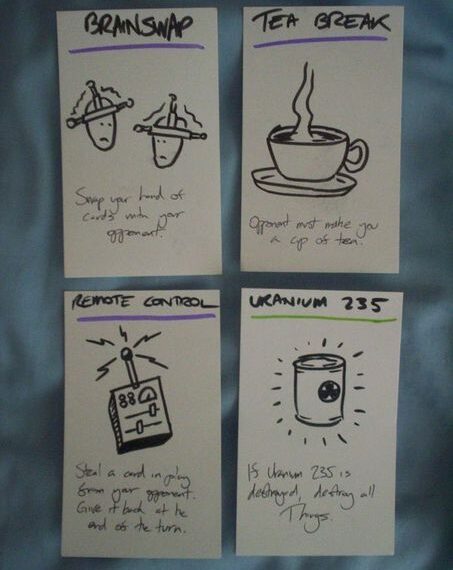 BRAINSWAP
Swap your hand of
cards with your
opponent.
TEA BREAK
Opponent must make you
a cup of tea.
REMOTE CONTROL
88
Steal a card in play
from your opponent.
Give it back at the
end of the turn.
URANIUM 235
If Uranium 235 is
destroyed, destroy all
Things.